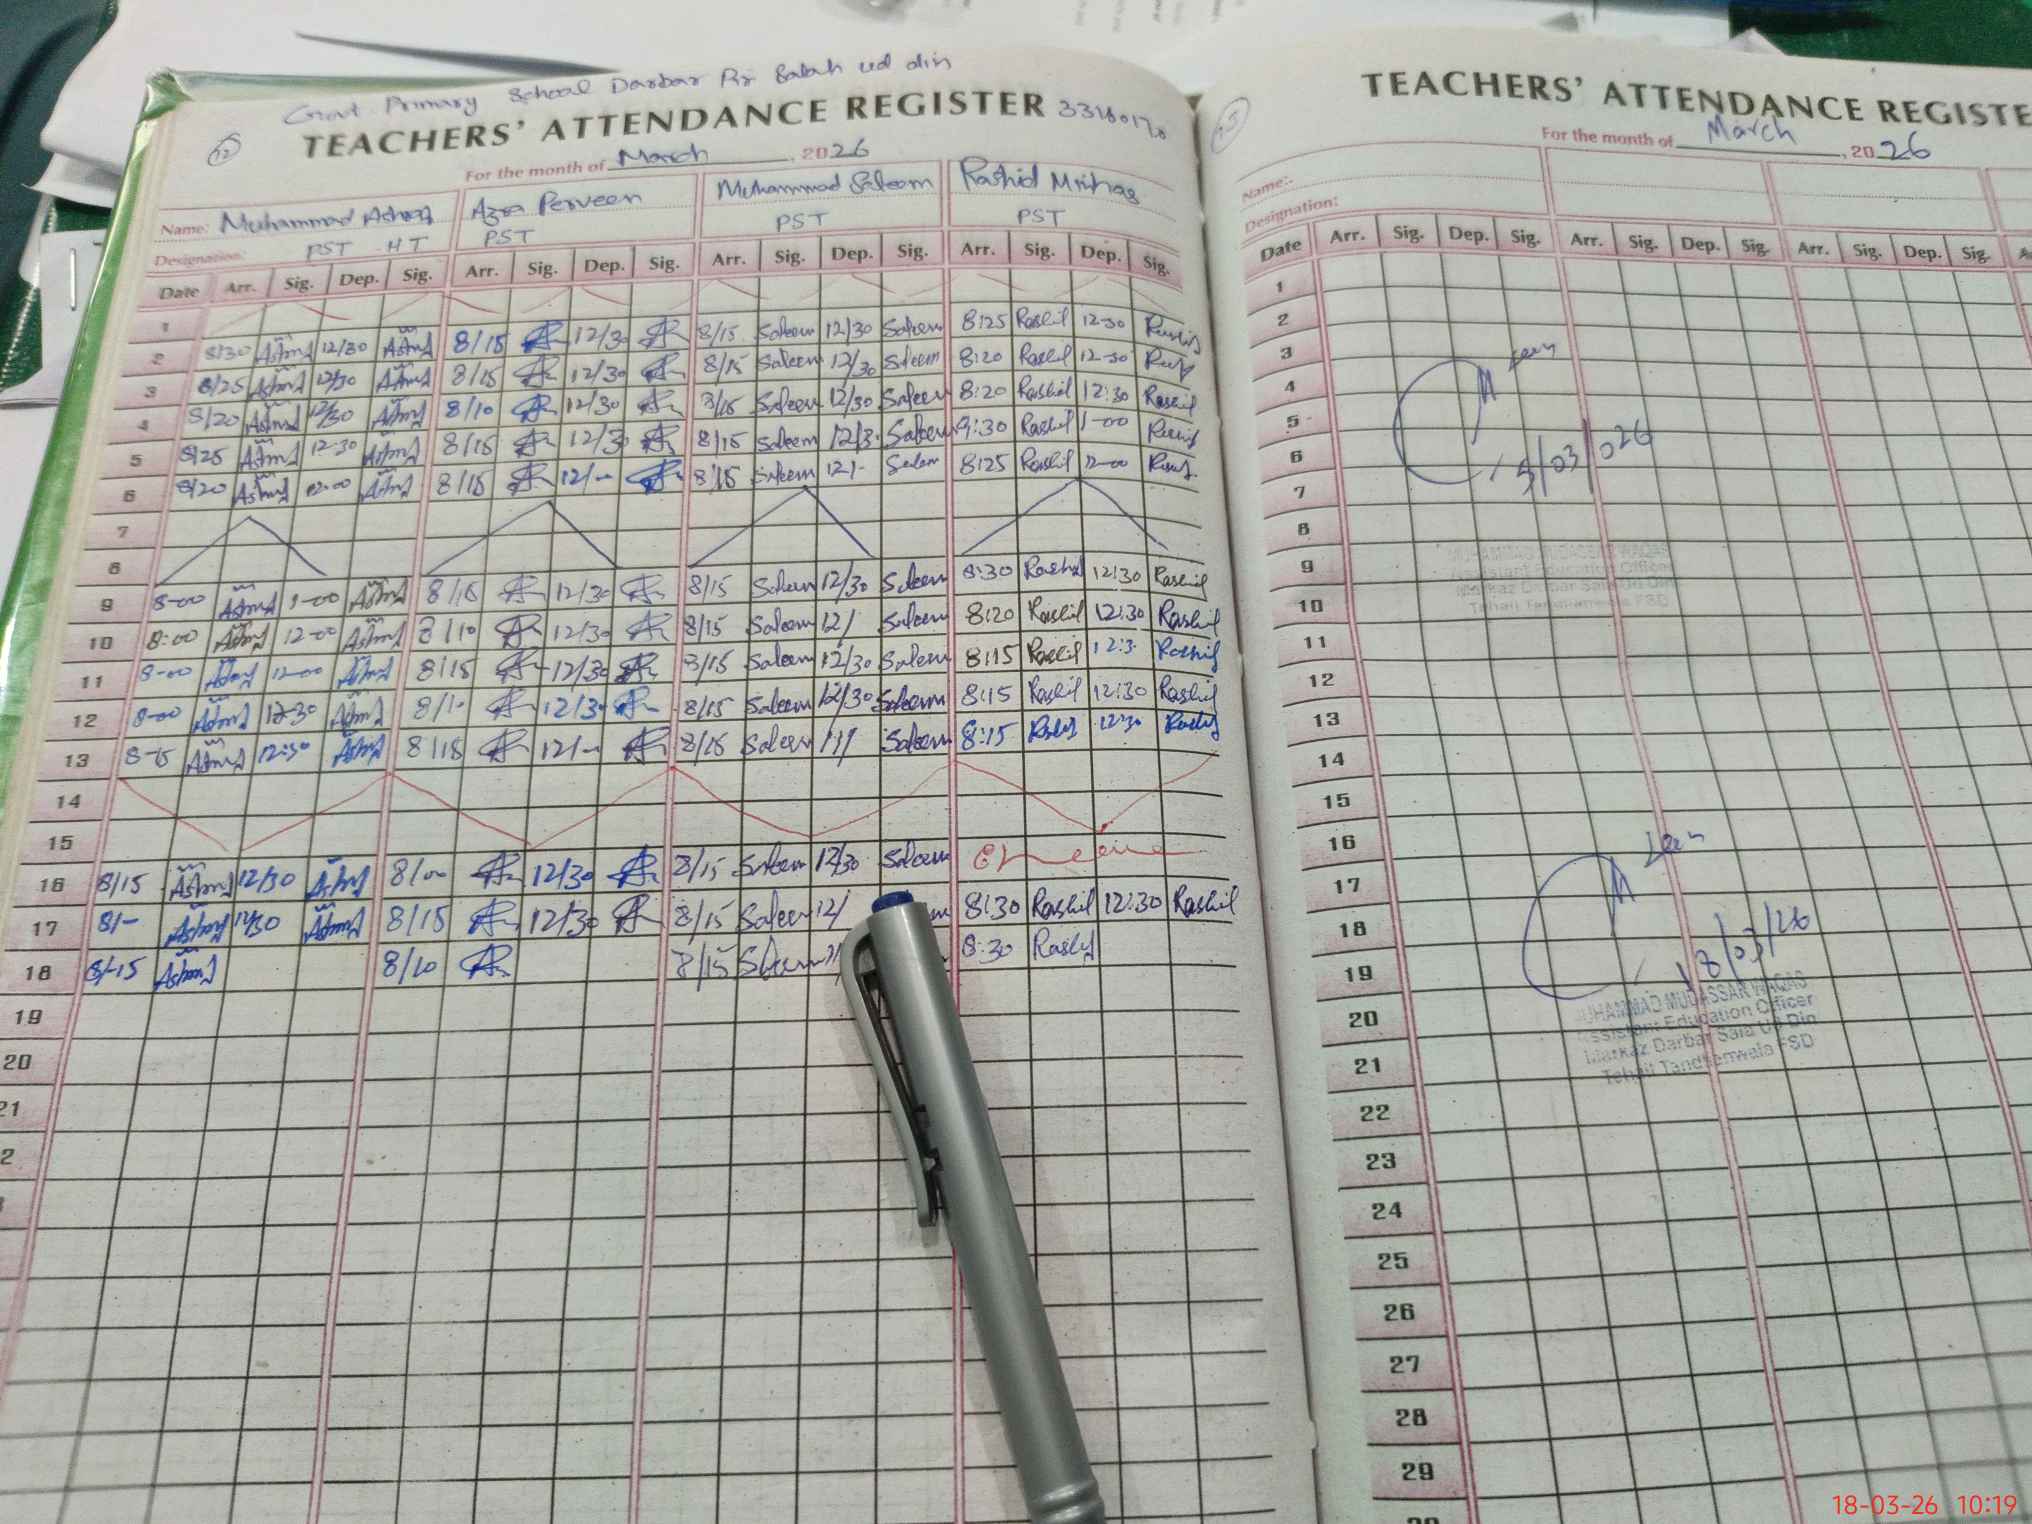 Govt. Primary School Darbar Pir Salah ud din
12
TEACHERS' ATTENDANCE REGISTER
For the month of March, 2026
Name: Muhammad Ashraf Azra Perveen Muhammad Saleem Rashid Minhas
Designation: PST HT PST PST PST
Date Arr. Sig. Dep. Sig. Arr. Sig. Dep. Sig. Arr. Sig. Dep. Sig. Arr. Sig. Dep. Sig.
1
2 8/30 12/30 8/15 12/30 8/15 Saleem 12/30 Saleem 8:25 Rashid 12-30
3 8/25 12/30 8/15 12/30 8/15 Saleem 12/30 Saleem 8:20 Rashid 12-30
4 8/20 12/30 8/10 12/30 8/15 Saleem 12/30 Saleem 8:20 Rashid 12:30 Rashid
5 8/25 12-30 8/15 12/30 8/15 Saleem 12/3 Saleem 9:30 Rashid 1-00
6 8/20 12-00 8/15 12/- 8/15 Saleem 12/- Saleem 8:25 Rashid 12-00
7
8
9 8-00 1-00 8/15 12/30 8/15 Saleem 12/30 Saleem 8:30 Rashid 12:30 Rashid
10 8:00 12-00 8/10 12/30 8/15 Saleem 12/ Saleem 8:20 Rashid 12:30 Rashid
11 8-00 12-00 8/15 12/30 8/15 Saleem 12/30 Saleem 8:15 Rashid 12:3 Rashid
12 8-00 12-30 8/10 12/30 8/15 Saleem 12/30 Saleem 8:15 Rashid 12:30 Rashid
13 8-15 12:30 8/15 12/- 8/15 Saleem Saleem 8:15 12:30
14
15
16 8/15 12/30 8/00 12/30 8/15 Saleem 12/30 Saleem
17 8/- 12/30 8/15 12/30 8/15 Saleem 12/ 8:30 Rashid 12:30 Rashid
18 8/-15 8/10 8/15 Saleem 8:30
19
20
21
TEACHERS' ATTENDANCE REGISTE
For the month of March, 2026
Name:-
Designation:
Date Arr. Sig. Dep. Sig. Arr. Sig. Dep. Sig. Arr. Sig. Dep. Sig.
1
2
3
4
5
6
7
8
9
10
11
12
13
14
15
16
17
18
19
20
21
22
23
24
25
26
27
28
29
Seen
5/03/026
MUHAMMAD MUDASSAR WAQAS
Assistant Education Officer
Markaz Darbar Sala Ud Din
Tehsil Tandlianwala FSD
Seen
18/03/26
UHAMMAD MUDASSAR WAQAS
Assistant Education Officer
Markaz Darbar Sala Ud Din
Tehsil Tandlianwala FSD
18-03-26 10:19